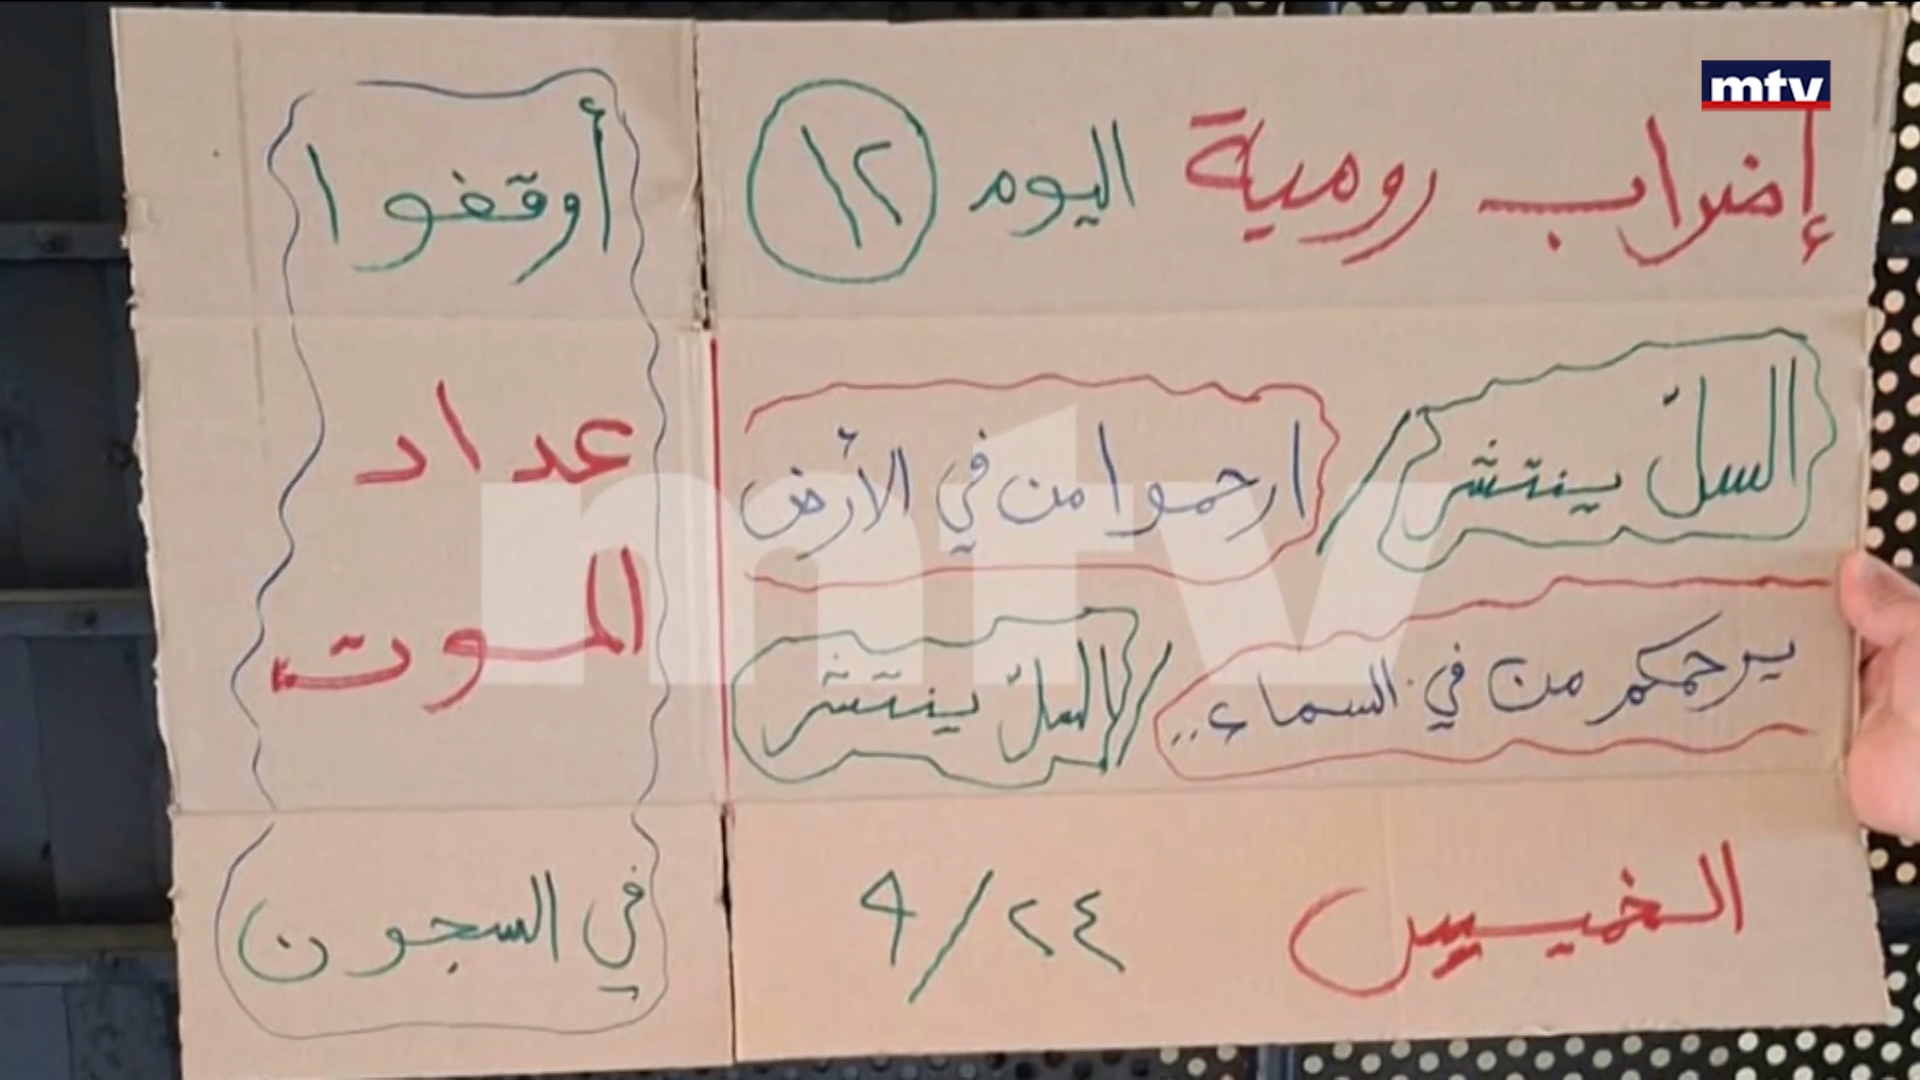 mtv
إضراب رومية اليوم ١٢
السلّ ينتشر / ارحموا من في الأرض
يرحمكم من في السماء.. / السلّ ينتشر
الخميس ٢٤/٩
أوقفوا
عداد
الموت
في السجون
mtv